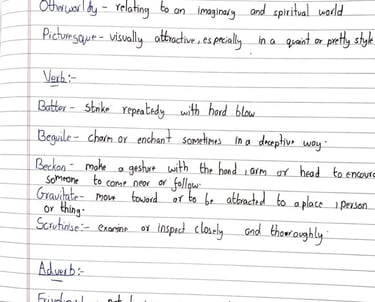 Otherworldly - relating to an imaginary and spiritual world
Picturesque - visually attractive, especially in a quaint or pretty style
Verb:-
Batter - strike repeatedy with hard blow
Beguile - charm or enchant sometimes in a deceptive way.
Beckon - make a gesture with the hand, arm or head to encoura
someone to come near or follow.
Gravitate - move toward or to be attracted to a place, person
or thing.
Scrutinise:- examine or inspect closely and thoroughly.
Adverb:-